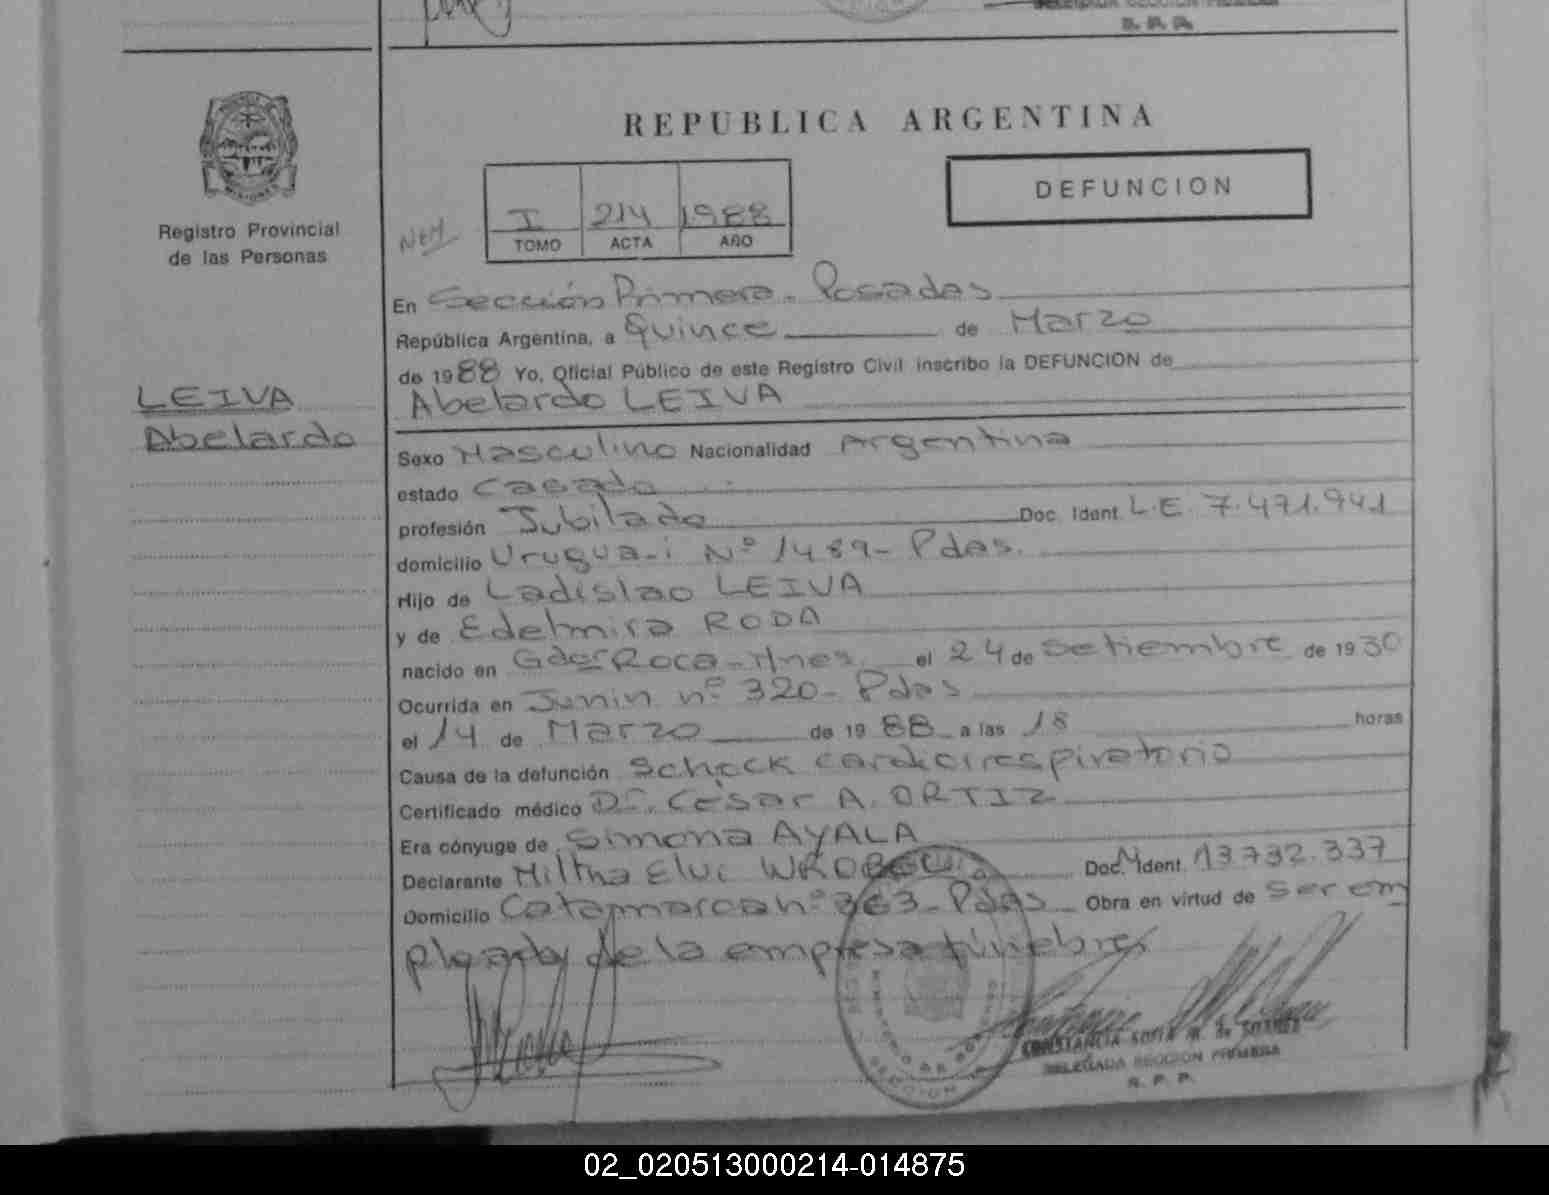 DELEGADA SECCION PRIMERA
R. P. P.
REPUBLICA ARGENTINA
DEFUNCION
I 214 1988
TOMO ACTA AÑO
Registro Provincial
de las Personas
En Sección Primera - Posadas
República Argentina, a Quince de Marzo
de 1988 Yo, Oficial Público de este Registro Civil inscribo la DEFUNCION de
LEIVA
Abelardo
Abelardo LEIVA
Sexo Masculino Nacionalidad Argentina
estado Casado
profesión Jubilado Doc. Ident. L.E. 7.471.941
domicilio Uruguai Nº 1489- Pdas.
Hijo de Ladislao LEIVA
y de Edelmira RODA
nacido en Gdor Roca - Mnes. el 24 de Setiembre de 1930
Ocurrida en Junin nº 320- Pdas
el 14 de Marzo de 1988 a las 18 horas
Causa de la defunción Schock cardiorrespiratorio
Certificado médico Dr. César A. ORTIZ
Era cónyuge de Simona AYALA
Declarante Miltha Elvi Doc. Ident. 13.732.337
Domicilio Catamarca nº 363- Pdas Obra en virtud de ser em
pleado de la empresa fúnebres
CONSTANCIA SOFIA M. de
DELEGADA SECCION PRIMERA
R. P. P.
02_020513000214-014875